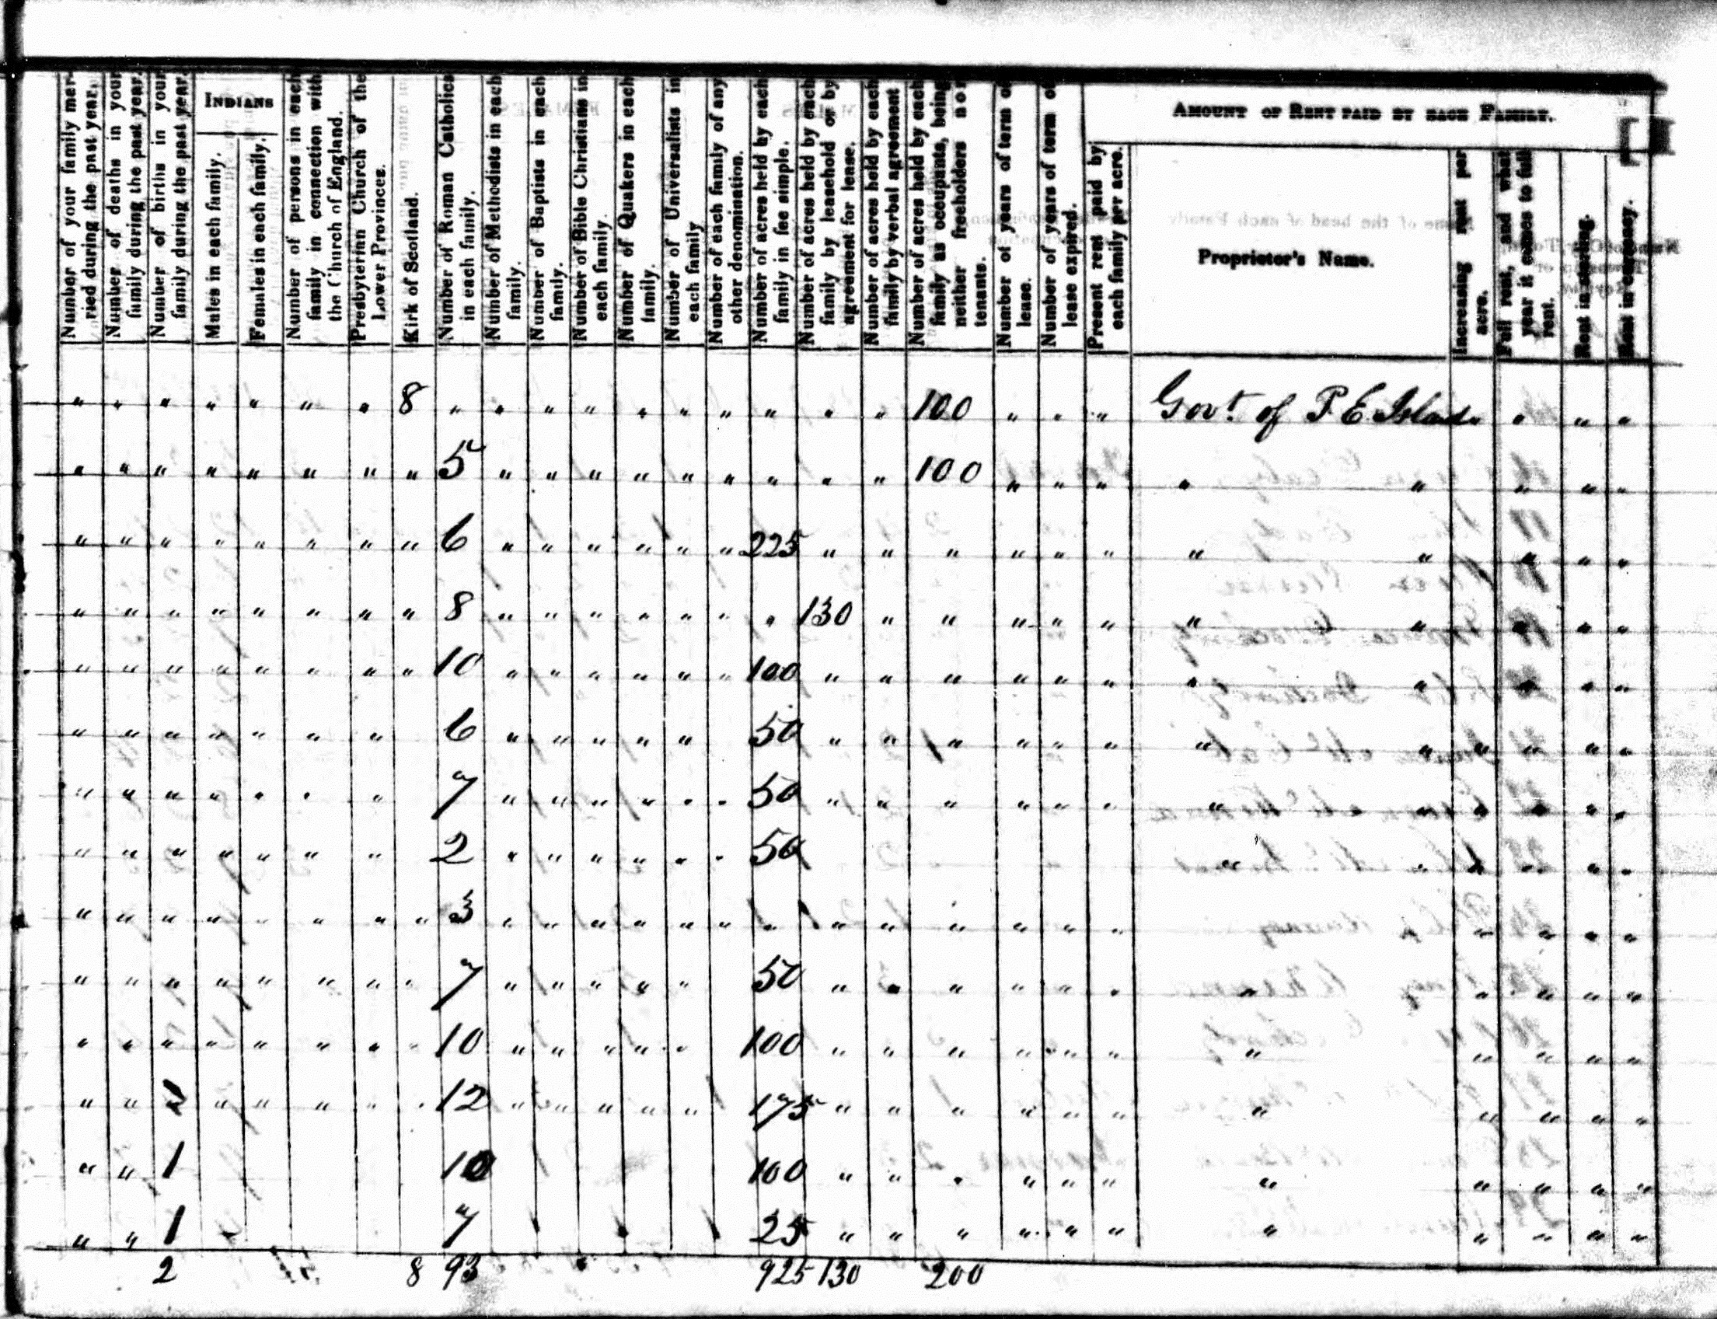 INDIANS
AMOUNT OF RENT PAID BY EACH FAMILY.
Number of your family married during the past year.
Number of deaths in your family during the past year.
Number of births in your family during the past year.
Males in each family.
Females in each family.
Number of persons in each family in connection with the Church of England.
Presbyterian Church of the Lower Provinces.
Kirk of Scotland.
Number of Roman Catholics in each family.
Number of Methodists in each family.
Number of Baptists in each family.
Number of Bible Christians in each family.
Number of Quakers in each family.
Number of Universalists in each family
Number of each family of any other denomination.
Number of acres held by each family in fee simple.
Number of acres held by each family by leasehold or by agreement for lease.
Number of acres held by each family by verbal agreement
Number of acres held by each family as occupants, being neither freeholders nor tenants.
Number of years of term of lease.
Number of years of term of lease expired.
Present rent paid by each family per acre.
Proprietor's Name.
Increasing rent per acre.
Full rent, and what year it comes to full rent.
Rent in sterling.
Rent in currency.
" " " " " " " 8 " " " " " " " " " " 100 " " " Govt. of P. E. Island " " " "
" " " " " " " " 5 " " " " " " " " " 100 " " " " " " " "
" " " " " " " " 6 " " " " " " 225 " " " " " " " " " " "
" " " " " " " " 8 " " " " " " " 130 " " " " " " " " " " "
" " " " " " " " 10 " " " " " " 100 " " " " " " " " " " " "
" " " " " " " 6 " " " " " 50 " " " " " " " " " " " "
" " " " " " " 7 " " " " " " 50 " " " " " " " " " " " "
" " " " " " " 2 " " " " " " 50 " " " " " "
" " " " " " " " 3 " " " " " " " " " " " " " " " " " "
" " " " " " " " 7 " " " " " 50 " " " " " " " " " " "
" " " " " " " " 10 " " " " " 100 " " " " " " " " " " "
" " 2 " " " " " 12 " " " " " 175 " " " " " " " " " " "
" " 1 10 100 " " " " " " " " " " "
" " 1 7 25 " " " " " " " " " " "
2 8 93 925 130 200